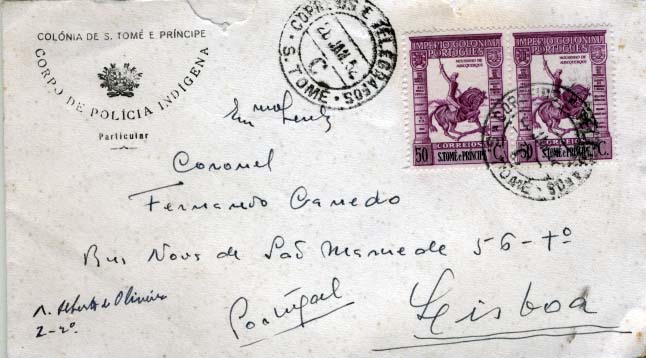 COLÓNIA DE S. TOMÉ E PRÍNCIPE
CORPO DE POLÍCIA INDÍGENA
Particular
CORREIOS E TELEGRAFOS
S. TOMÉ
C
IMPÉRIO COLONIAL PORTUGUÊS
MOUSINHO DE ALBUQUERQUE
CORREIOS
50 S. TOMÉ e PRÍNCIPE C.
IMPÉRIO COLONIAL PORTUGUÊS
MOUSINHO DE ALBUQUERQUE
CORREIOS
50 S. TOMÉ e PRÍNCIPE C.
Coronel
Fernando Canedo
Rua Nova de São Mamede 56-
Portugal
Lisboa
Alberto de Oliveira
2-2º.